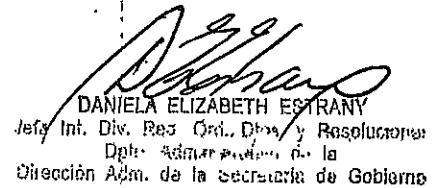 DANIELA ELIZABETH ESTRANY
Jefa Int. Div. Reg. Ord., Dtos. y Resoluciones
Dpto. de la
Dirección Adm. de la Secretaría de Gobierno